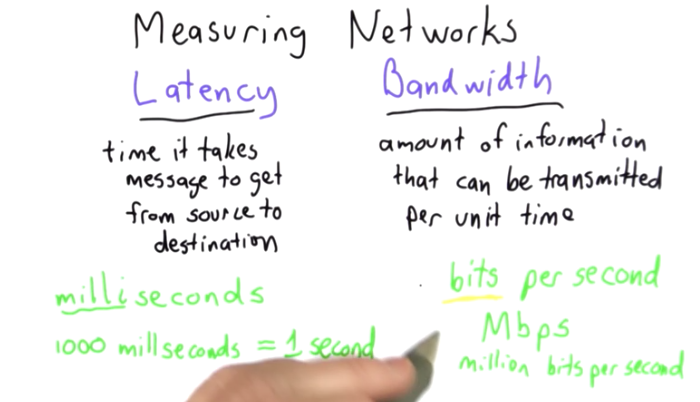 Measuring Networks
Latency
time it takes
message to get
from source to
destination
milliseconds
1000 millseconds = 1 second
Bandwidth
amount of information
that can be transmitted
per unit time
bits per second
Mbps
million bits per second